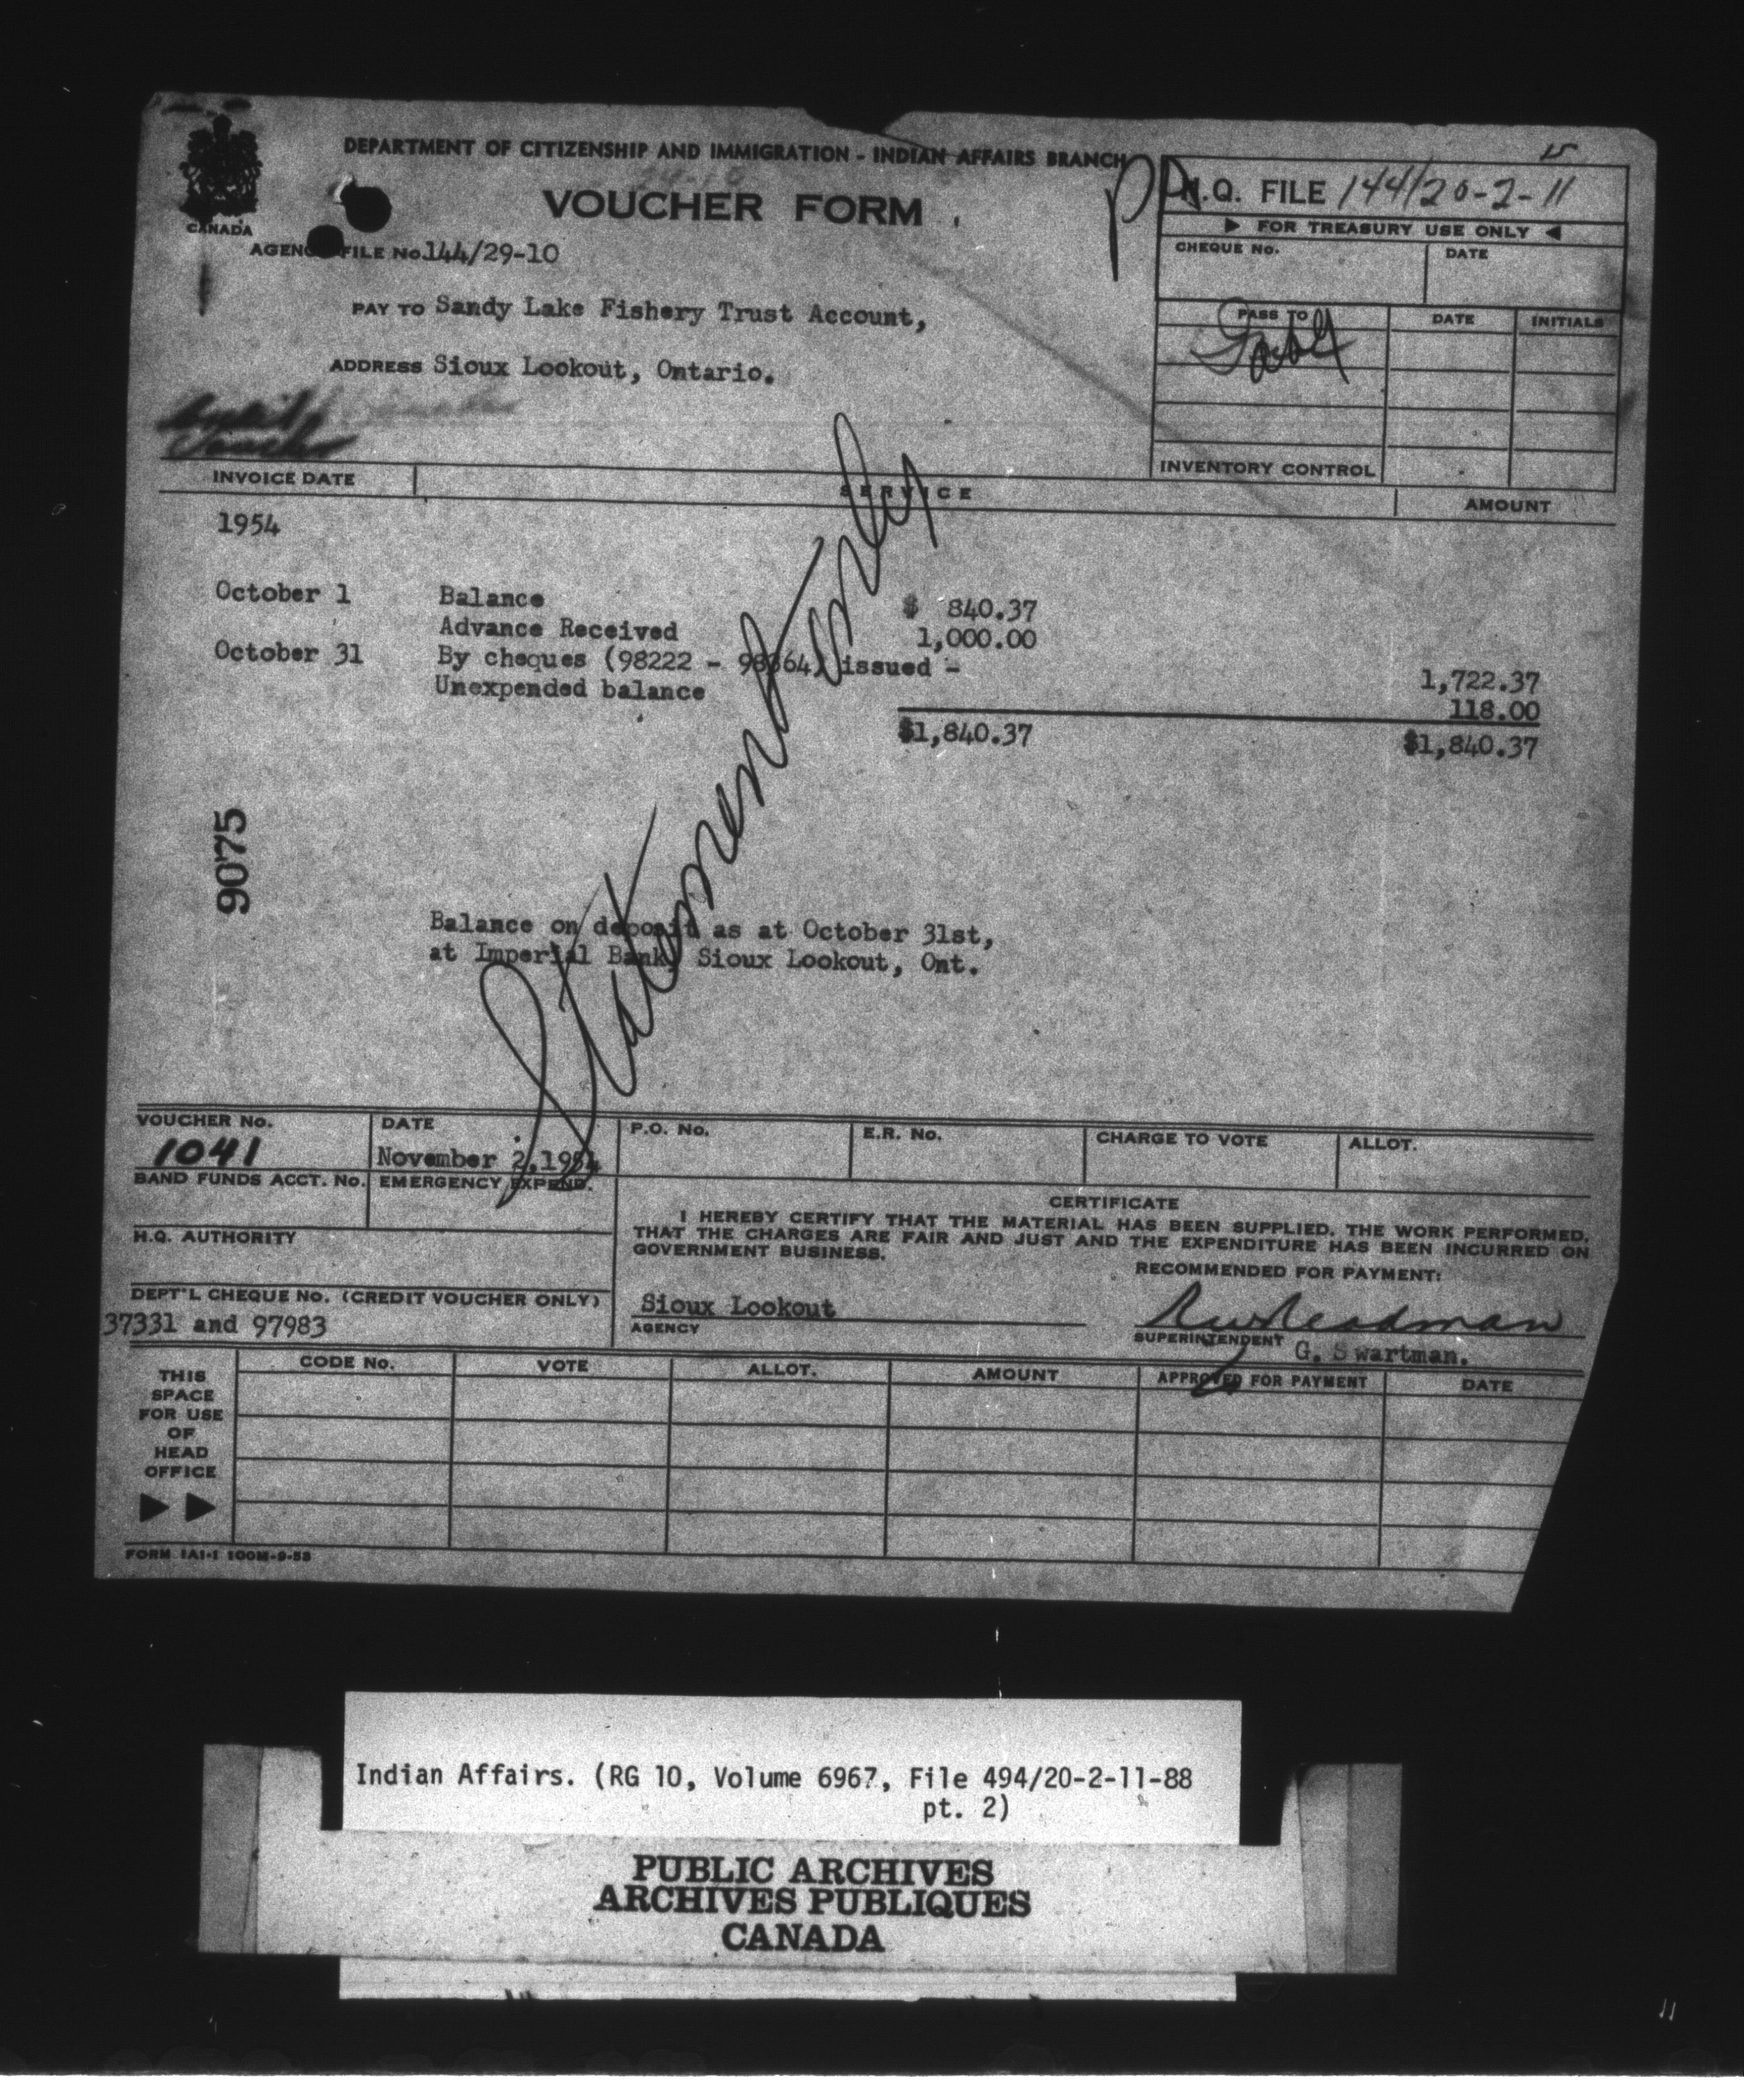 DEPARTMENT OF CITIZENSHIP AND IMMIGRATION - INDIAN AFFAIRS BRANCH
VOUCHER FORM
CANADA
AGENCY FILE No. 144/29-10
PAY TO Sandy Lake Fishery Trust Account,
ADDRESS Sioux Lookout, Ontario.
15
H.Q. FILE 144/20-2-11
FOR TREASURY USE ONLY
CHEQUE No. DATE
PASS TO DATE INITIALS
INVENTORY CONTROL
INVOICE DATE SERVICE AMOUNT
1954
October 1 Balance $ 840.37
Advance Received 1,000.00
October 31 By cheques (98222 - 98364) issued -
1,722.37
Unexpended balance 118.00
$1,840.37 $1,840.37
Statement only
9075
Balance on deposit as at October 31st,
at Imperial Bank, Sioux Lookout, Ont.
VOUCHER No. DATE P.O. No. E.R. No. CHARGE TO VOTE ALLOT.
1041 November 2, 1954
BAND FUNDS ACCT. No. EMERGENCY EXPEND.
H.Q. AUTHORITY
DEPT'L CHEQUE No. (CREDIT VOUCHER ONLY)
37331 and 97983
CERTIFICATE
I HEREBY CERTIFY THAT THE MATERIAL HAS BEEN SUPPLIED, THE WORK PERFORMED,
THAT THE CHARGES ARE FAIR AND JUST AND THE EXPENDITURE HAS BEEN INCURRED ON
GOVERNMENT BUSINESS.
RECOMMENDED FOR PAYMENT:
Sioux Lookout
AGENCY
SUPERINTENDENT G. Swartman.
THIS SPACE FOR USE OF HEAD OFFICE
CODE No. VOTE ALLOT. AMOUNT APPROVED FOR PAYMENT DATE
FORM 1A1-1 100M-9-53
Indian Affairs. (RG 10, Volume 6967, File 494/20-2-11-88
pt. 2)
PUBLIC ARCHIVES
ARCHIVES PUBLIQUES
CANADA